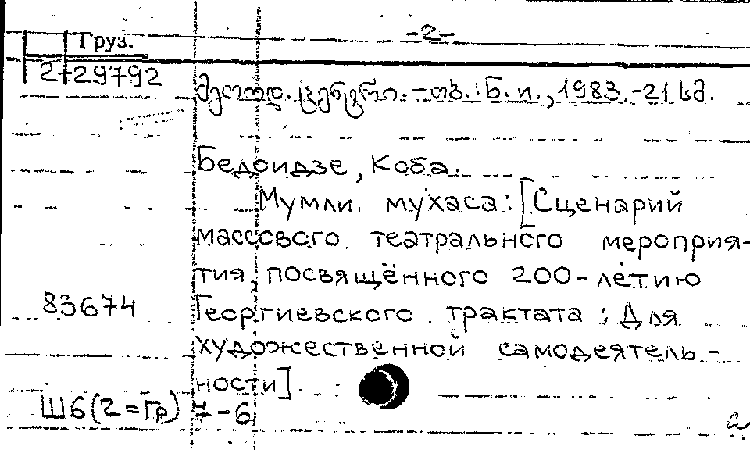 -2-
Груз.
2-29792
მეთოდ. ცენტრი. - თბ.: Б. и., 1983. - 21 სმ.
Бедоидзе, Коба.
Мумли мухаса: [Сценарий
массового театрального мероприя-
тия, посвящённого 200-летию
83674 Георгиевского трактата: Для
художественной самодеятель-
ности].
Ш6(2=Гр)7-6